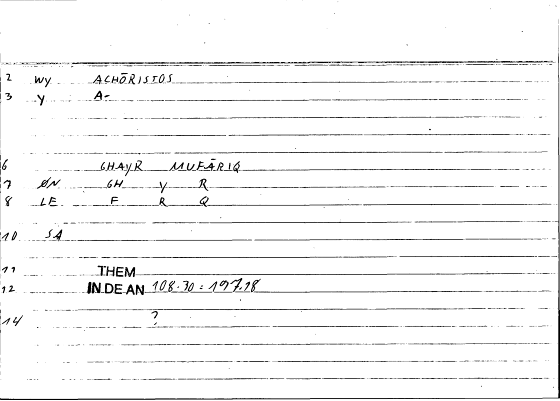 2 wy ACHŌRISTOS
3 y A-
6 GHAYR MUFĀRIQ
7 ØN GH Y R
8 LE F R Q
10 SA
11 THEM
12 IN DE AN 108.30 : 197.18
14 ?